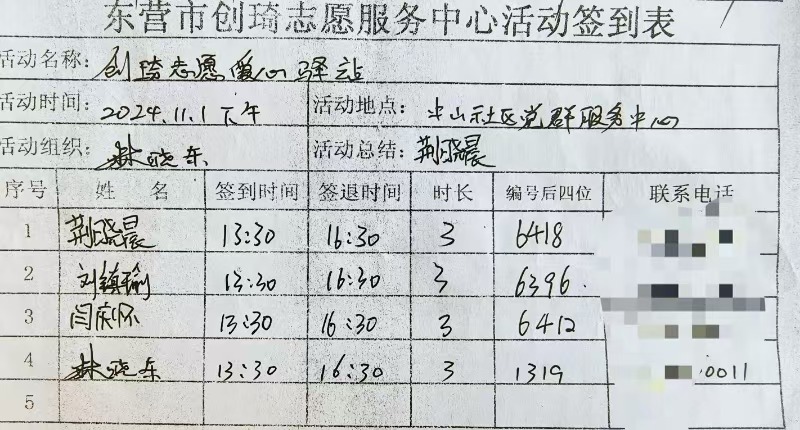 东营市创琦志愿服务中心活动签到表
活动名称： 创琦志愿爱心驿站
活动时间： 2024.11.1 下午 活动地点： 中山社区党群服务中心
活动组织： 林晓东 活动总结： 荆晓晨
序号 姓名 签到时间 签退时间 时长 编号后四位 联系电话
1 荆晓晨 13:30 16:30 3 6418
2 刘镇瑜 13:30 16:30 3 6396
3 闫庆怀 13:30 16:30 3 6412
4 林晓东 13:30 16:30 3 1319 0011
5